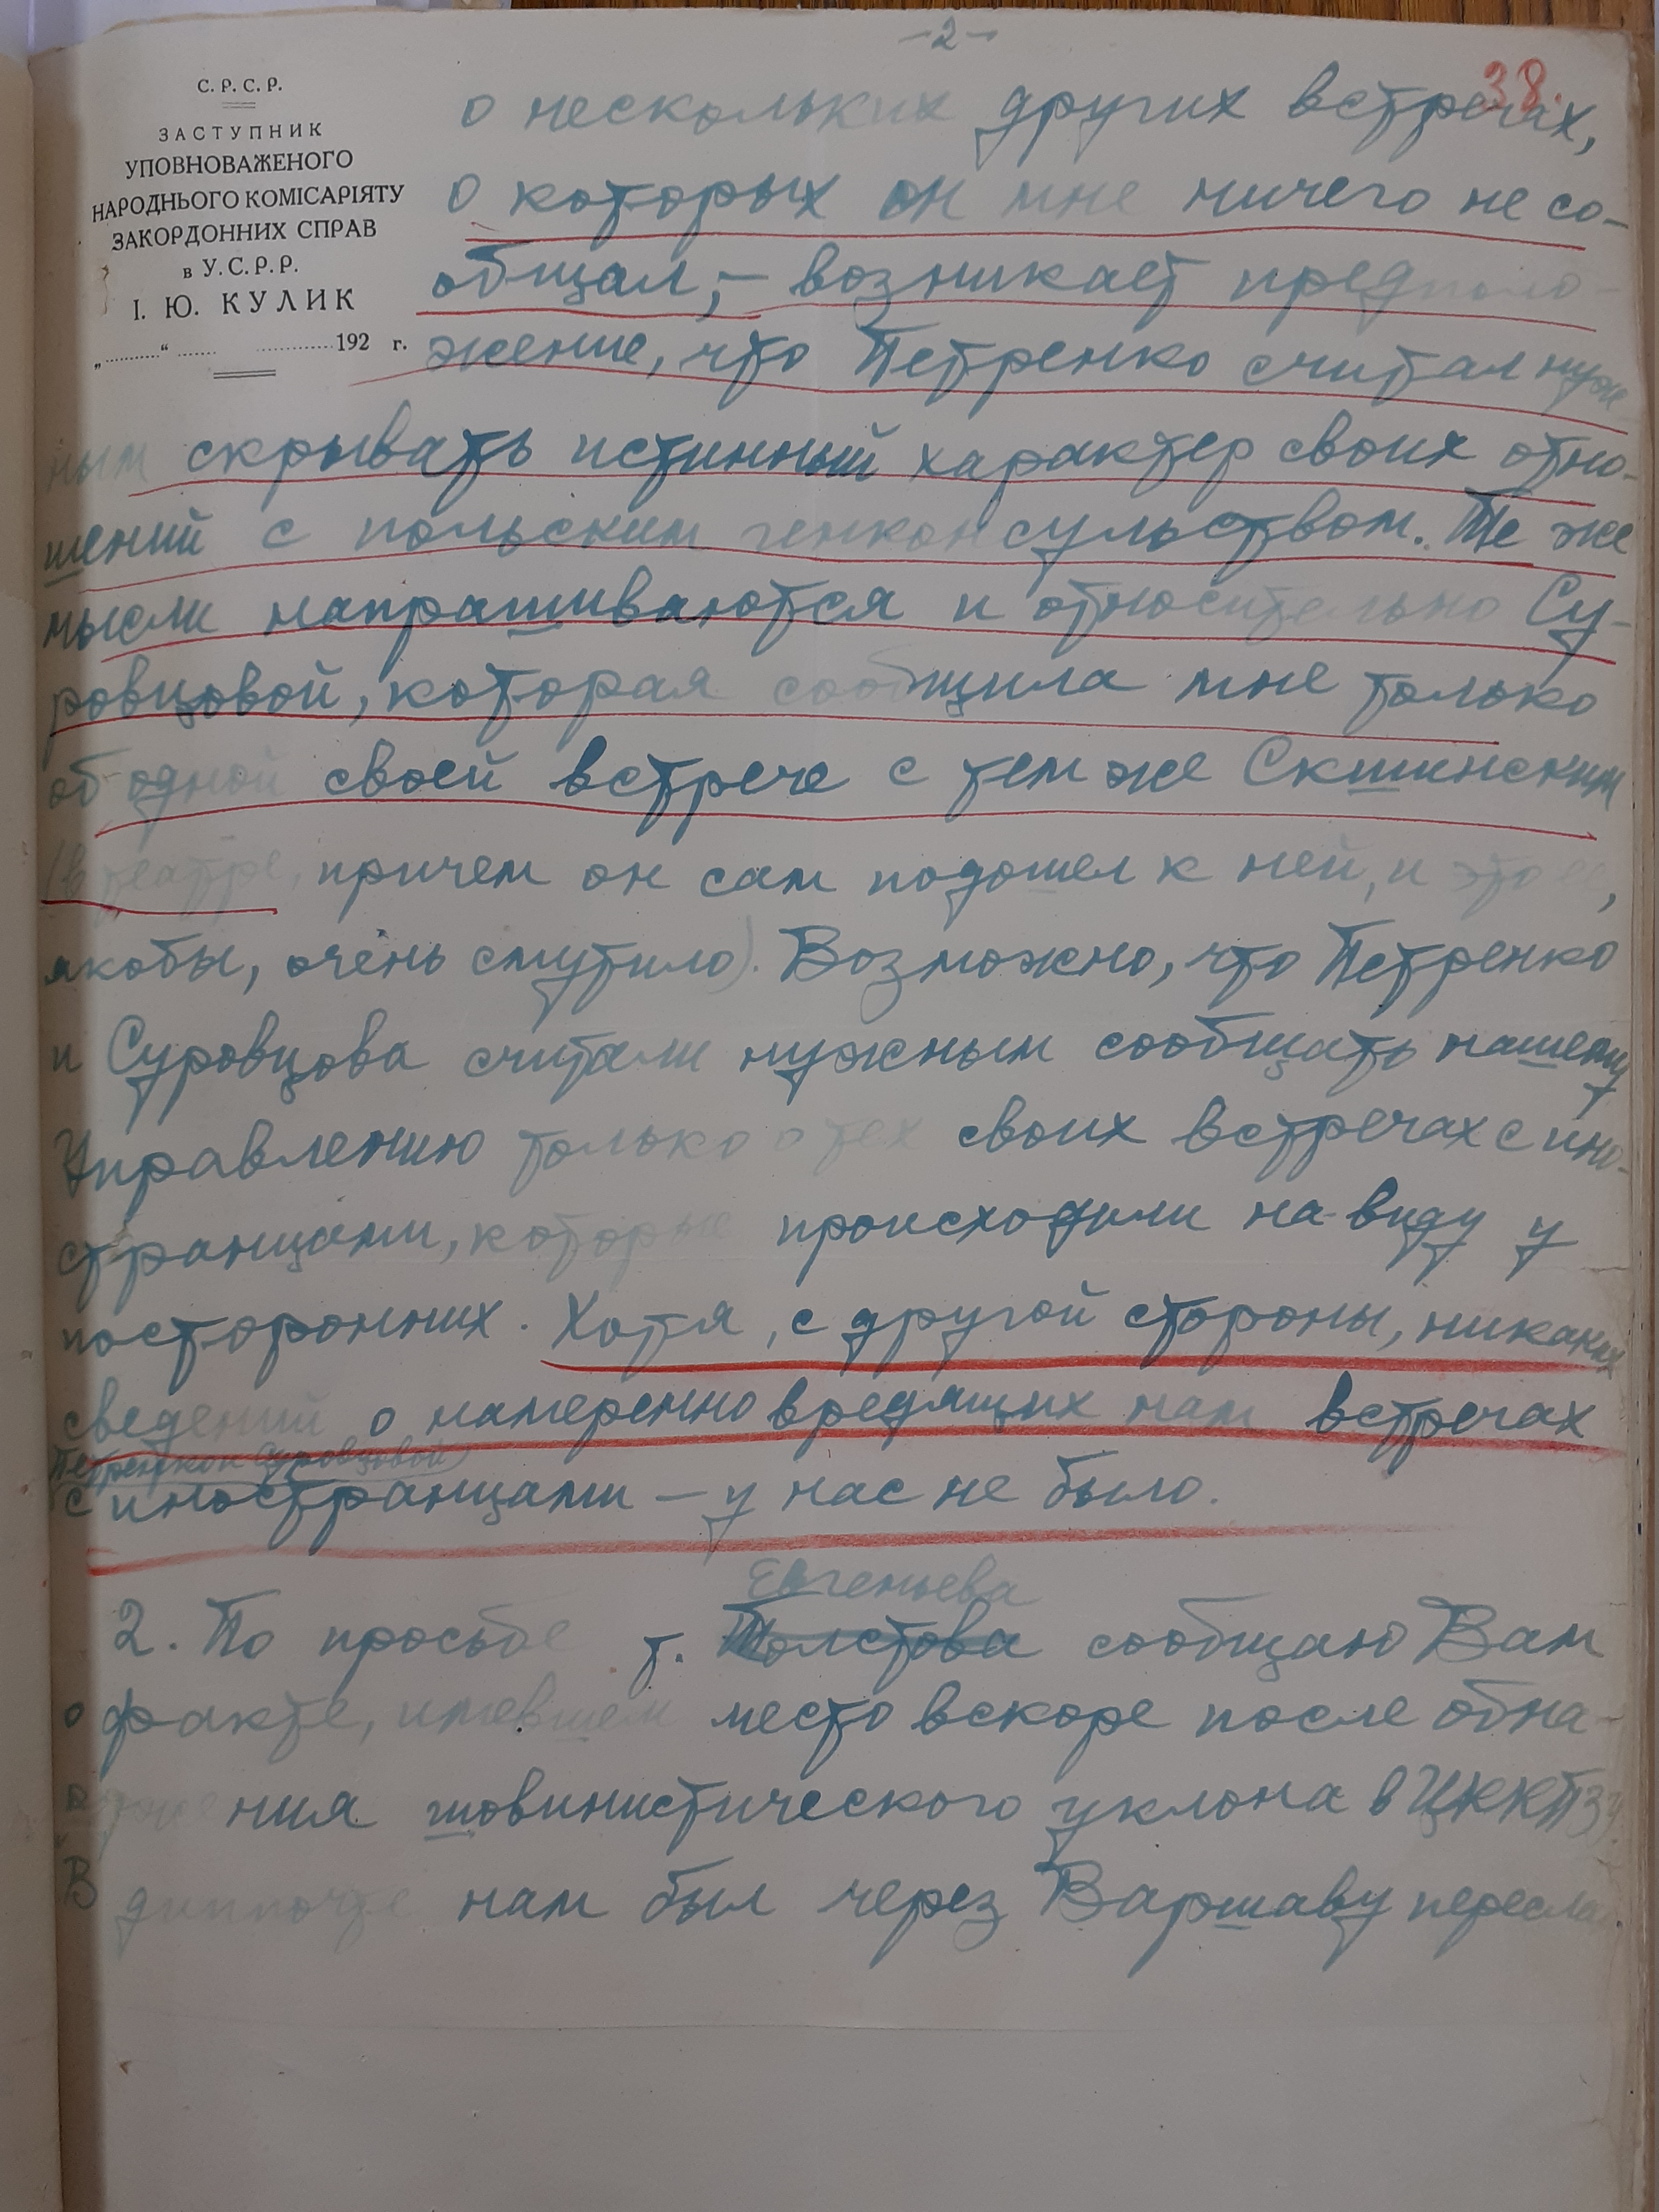 -2-
38.
С. Р. С. Р.
ЗАСТУПНИК
УПОВНОВАЖЕНОГО
НАРОДНЬОГО КОМІСАРІЯТУ
ЗАКОРДОННИХ СПРАВ
в У.С.Р.Р.
І. Ю. КУЛИК
„...........“ ....... .............192 г.
о нескольких других встречах,
о которых он мне ничего не со-
общал, – возникает предполо-
жение, что Петренко считал нуж-
ным скрывать истинный характер своих отно-
шений с польским генконсульством. Те же
мысли напрашиваются и относительно Су-
ровцовой, которая сообщила мне только
об одной своей встрече с тем же Скшинским
(в театре, причем он сам подошел к ней, и это ее,
якобы, очень смутило). Возможно, что Петренко
и Суровцова считали нужным сообщать нашему
Управлению только о тех своих встречах с ино-
странцами, которые происходили на виду у
посторонних. Хотя, с другой стороны, никаких
сведений о намеренно вредящих нам встречах
Петренко и Суровцовой
с иностранцами – у нас не было.
Евгеньева
2. По просьбе т. Толстова сообщаю Вам
о факте, имевшем место вскоре после обна-
ружения шовинистического уклона в ЦККПЗУ.
В диппочте нам был через Варшаву переслан